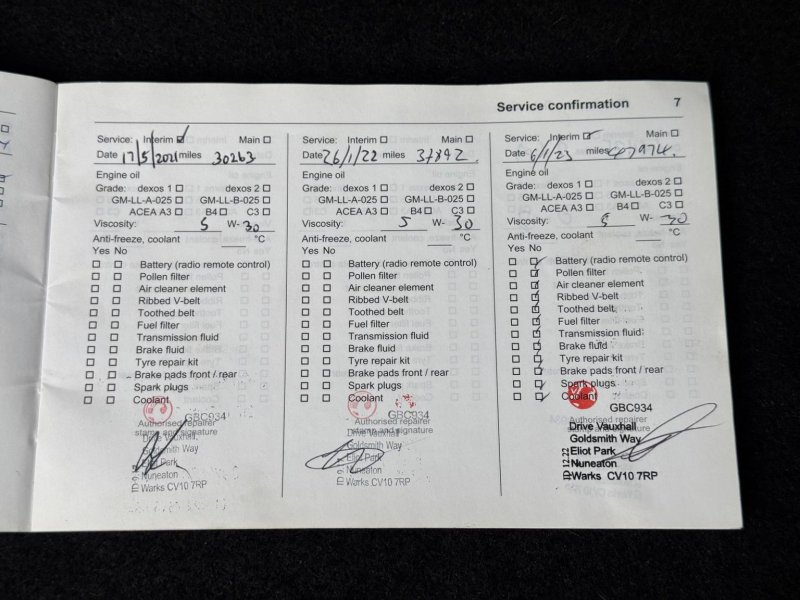 Service confirmation 7
Service: Interim Main
Date 17/5/2021 miles 30263
Engine oil
Grade: dexos 1 dexos 2
GM-LL-A-025 GM-LL-B-025
ACEA A3 B4 C3
Viscosity: 5 W- 30
Anti-freeze, coolant °C
Yes No
Battery (radio remote control)
Pollen filter
Air cleaner element
Ribbed V-belt
Toothed belt
Fuel filter
Transmission fluid
Brake fluid
Tyre repair kit
Brake pads front / rear
Spark plugs
Coolant
GBC934
Authorised repairer
stamp and signature
Drive Vauxhall
Goldsmith Way
Eliot Park
Nuneaton
Warks CV10 7RP
Service: Interim Main
Date 26/1/22 miles 37892
Engine oil
Grade: dexos 1 dexos 2
GM-LL-A-025 GM-LL-B-025
ACEA A3 B4 C3
Viscosity: 5 W- 30
Anti-freeze, coolant °C
Yes No
Battery (radio remote control)
Pollen filter
Air cleaner element
Ribbed V-belt
Toothed belt
Fuel filter
Transmission fluid
Brake fluid
Tyre repair kit
Brake pads front / rear
Spark plugs
Coolant
GBC934
Authorised repairer
stamp and signature
Drive Vauxhall
Goldsmith Way
Eliot Park
Nuneaton
Warks CV10 7RP
Service: Interim Main
Date 6/1/23 miles 47974.
Engine oil
Grade: dexos 1 dexos 2
GM-LL-A-025 GM-LL-B-025
ACEA A3 B4 C3
Viscosity: 5 W- 30
Anti-freeze, coolant °C
Yes No
Battery (radio remote control)
Pollen filter
Air cleaner element
Ribbed V-belt
Toothed belt
Fuel filter
Transmission fluid
Brake fluid
Tyre repair kit
Brake pads front / rear
Spark plugs
Coolant
GBC934
Authorised repairer
stamp and signature
Drive Vauxhall
Goldsmith Way
Eliot Park
Nuneaton
Warks CV10 7RP